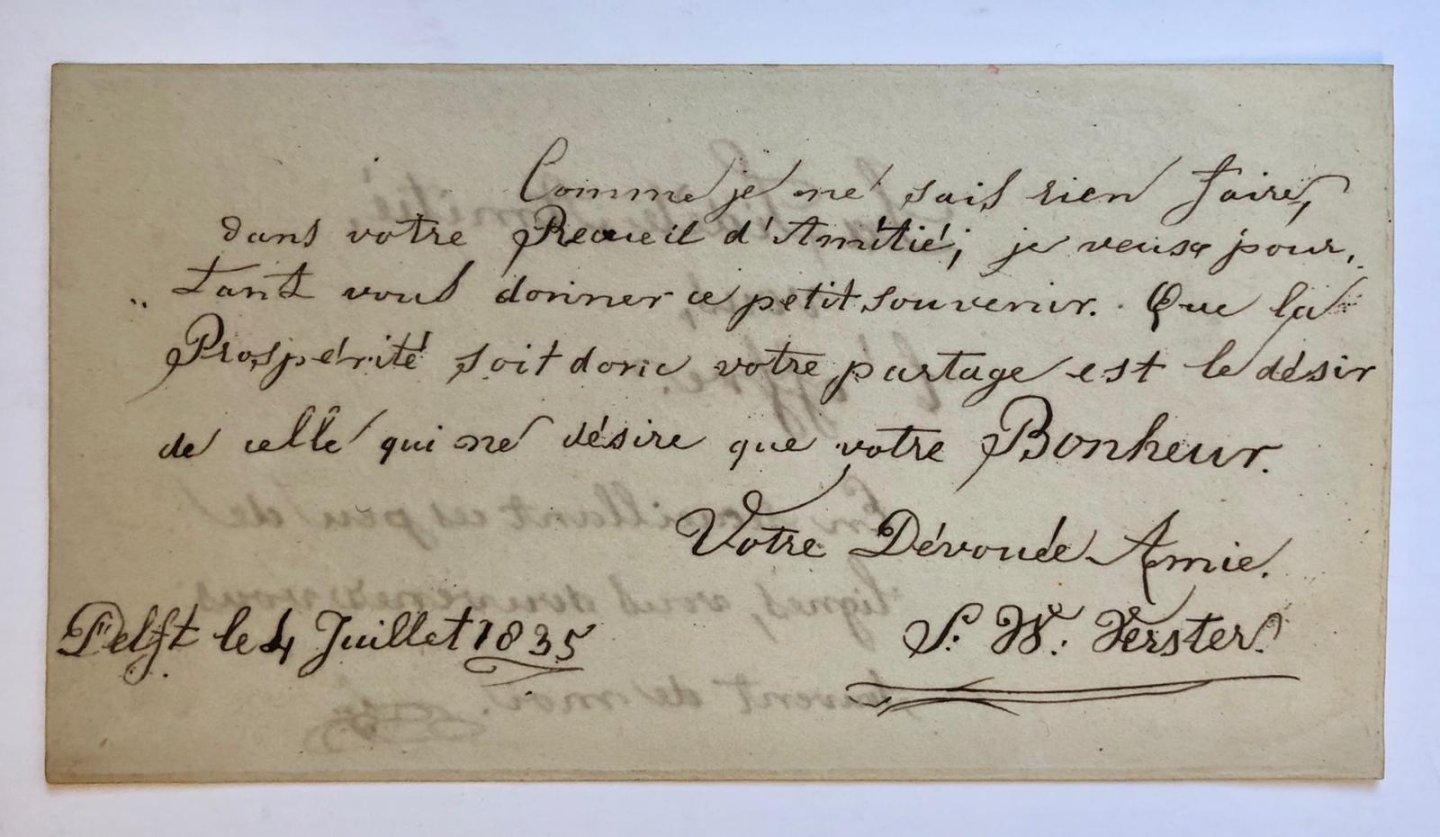 Comme je ne sais rien faire,
dans votre Recueil d'Amitié; je veux pour,,
,,tant vous donner ce petit souvenir. Que la
Prospérité soit donc votre partage est le désir
de celle qui ne désire que votre Bonheur.
Votre Dévouée Amie.
S. W. Verster.
Delft le 4 Juillet 1835